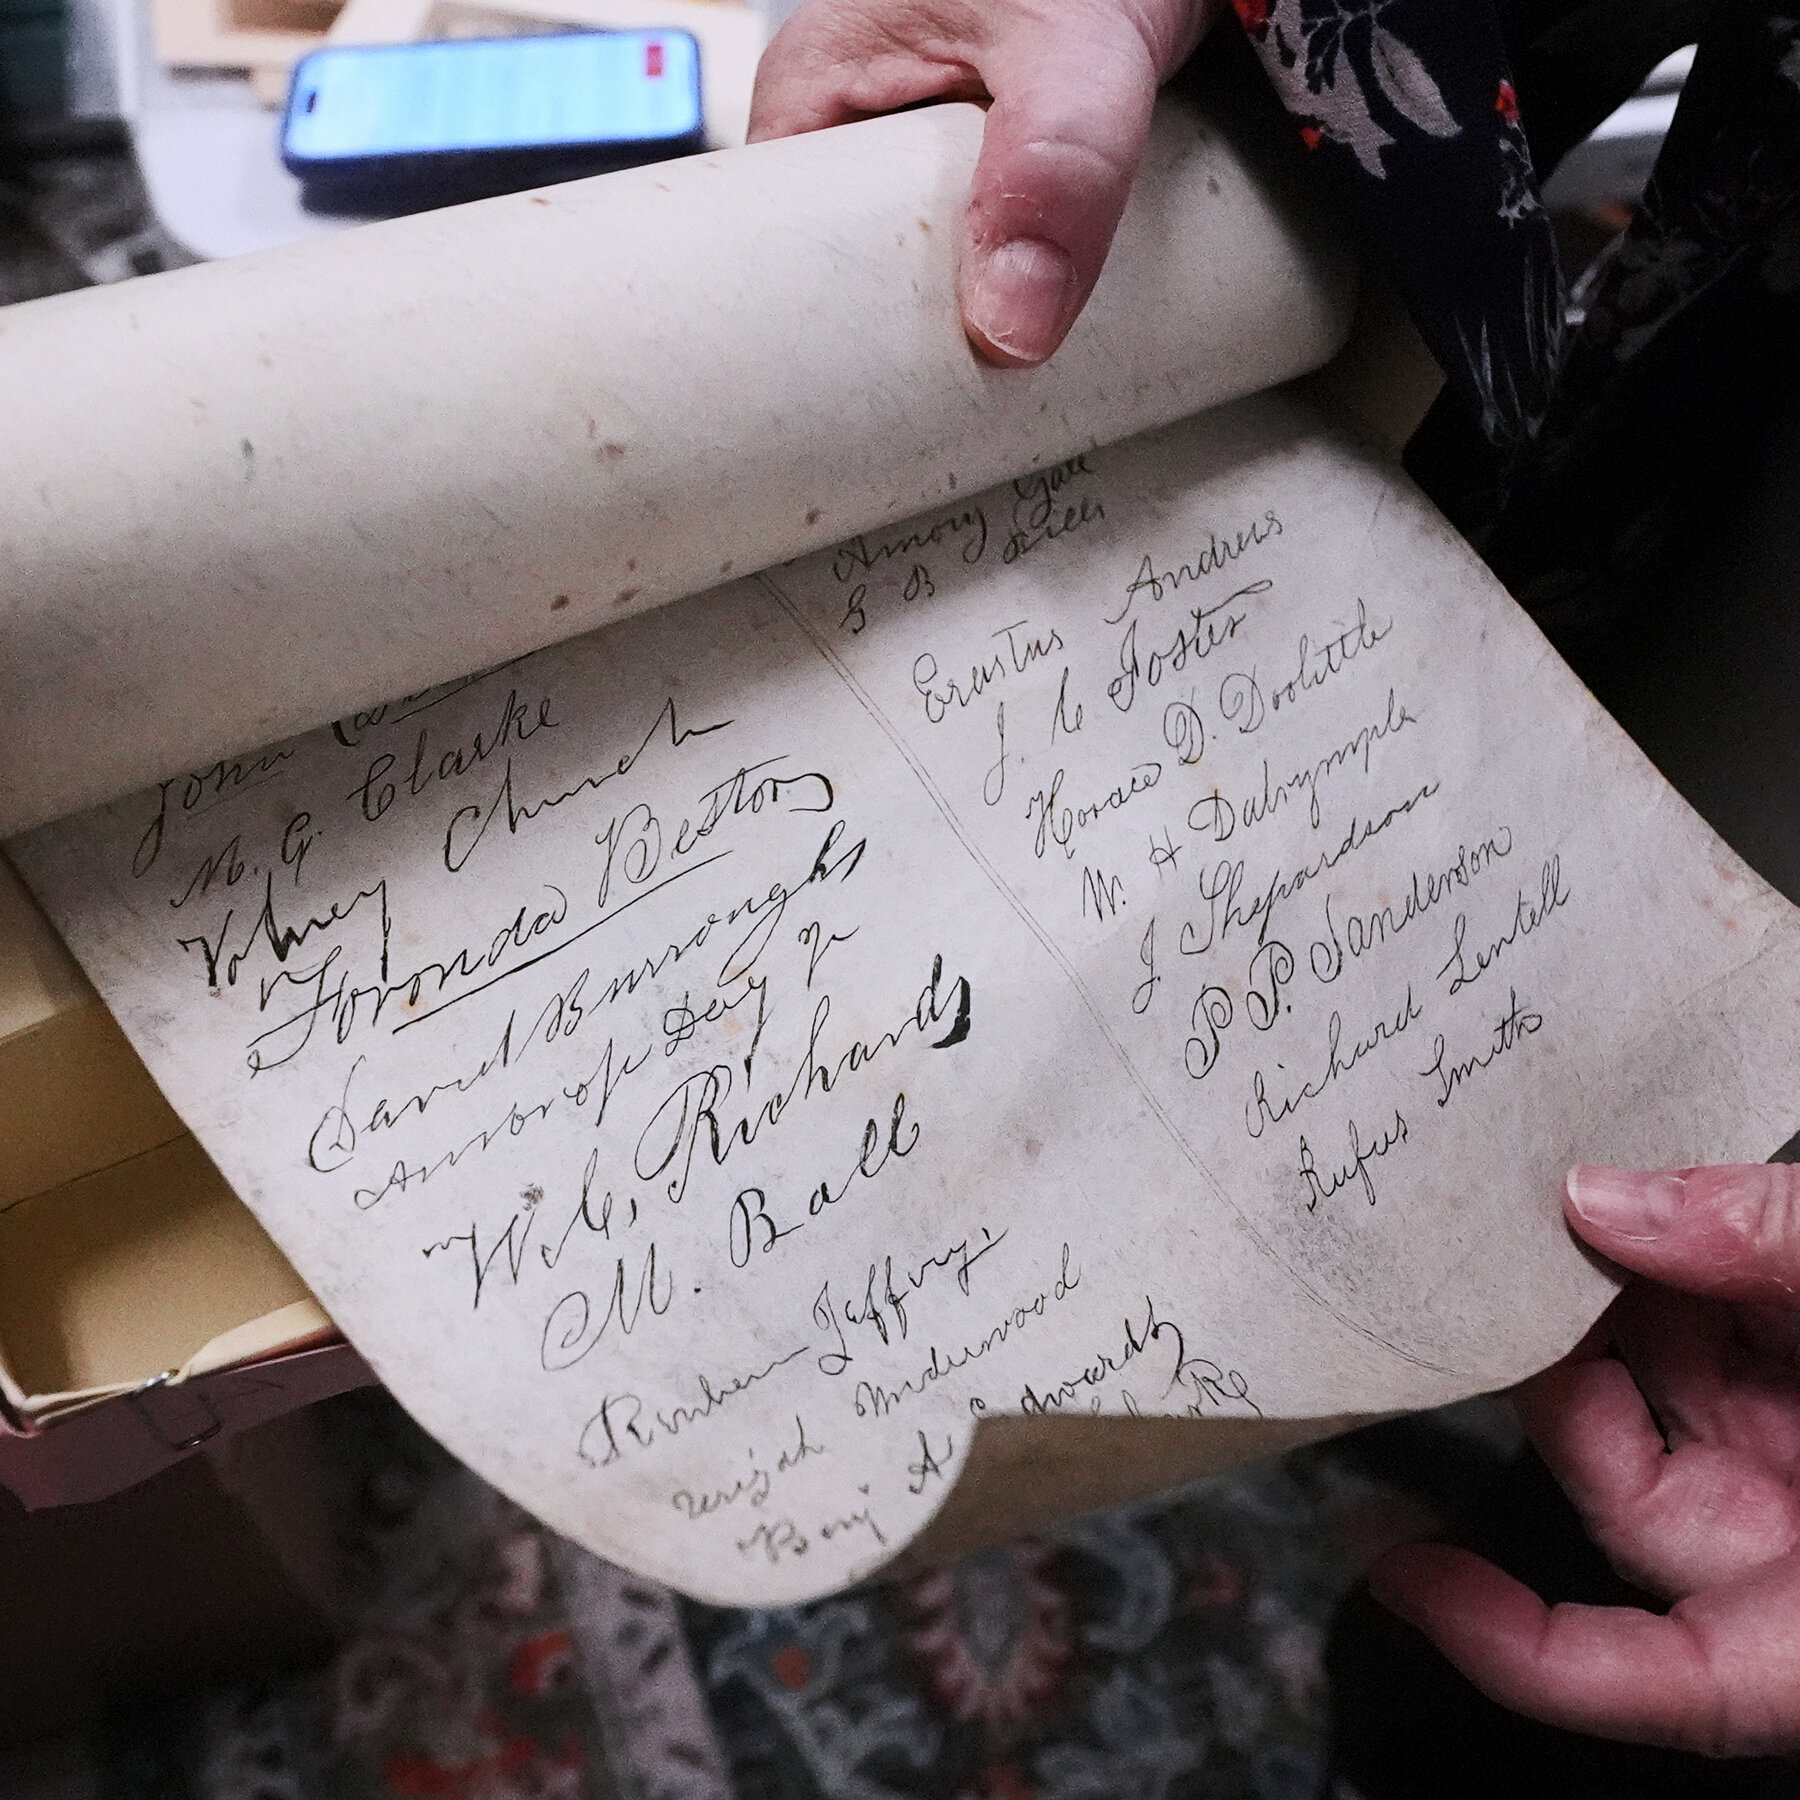 John
M. G. Clarke
Volney Church
Foronda Bestor
David Burroughs
Ambrose Day Jr
Wm C. Richards
M. Ball
Reuben Jeffrey.
Underwood
Benj A Edwards
Amory Gale
G B
Erastus Andrews
J. C Foster
Horace D. Doolittle
W. H Dalrymple
J. Shepardson
P. P. Sanderson
Richard Lentell
Rufus Smith